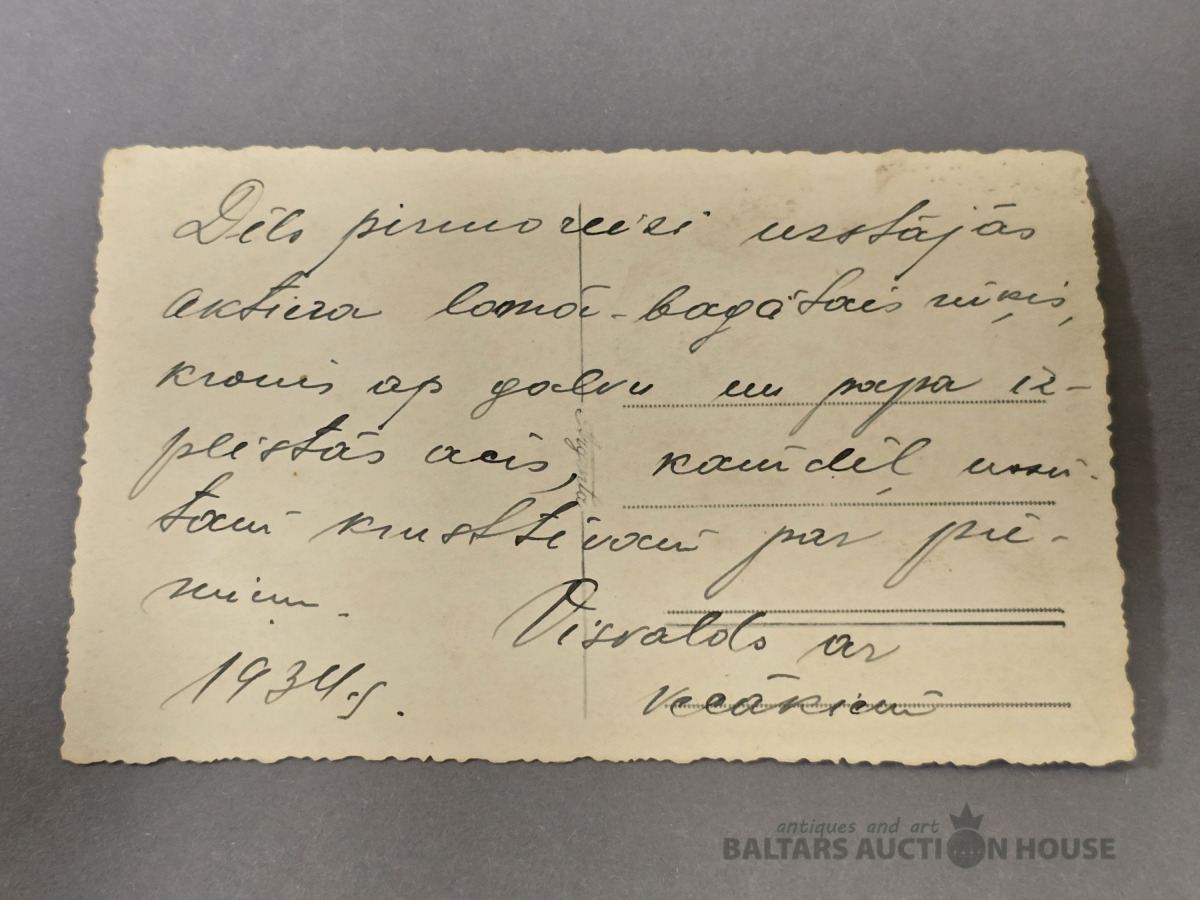 Dēls pirmoreizi uzstājās
aktiera lomā - bagātais rūķis,
kronis ap galvu un papa iz-
plēstās acis, kamdēļ nosū-
tam krusttēvam par pie-
miņu.
Visvalds ar
vecākiem
1934.g.
antiques and art
BALTARS AUCTION HOUSE